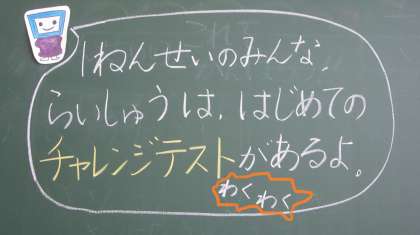 1ねんせいのみんな、
らいしゅうは、はじめての
チャレンジテストがあるよ。
わくわく